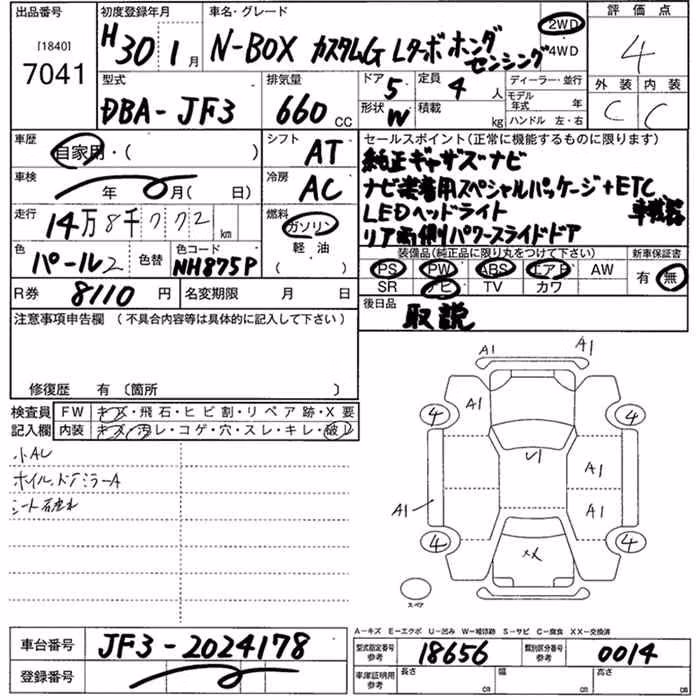 出品番号
[1840]
7041
初度登録年月
H30 1月
車名・グレード
N-BOX カスタムG Lターボ ホンダセンシング
2WD
4WD
評価点
4
型式
DBA-JF3
排気量
660 CC
ドア 5
定員 4 人
形状 W
積載 kg
ディーラー・並行
モデル年式 年
ハンドル 左・右
外装 内装
C C
車歴
自家用・( )
シフト
AT
車検
年 月( 日)
冷房
AC
走行
14万8千772 km
燃料
ガソリン
軽油
色
パール2
色替
色コード
NH875P
R券 8110 円
名変期限 月 日
セールスポイント(正常に機能するものに限ります)
純正ギャザズナビ
ナビ装着用スペシャルパッケージ+ETC車載器
LEDヘッドライト
リア両側パワースライドドア
装備品(純正品に限り丸をつけて下さい)
新車保証書
PS PW ABS エアB AW
SR ナビ TV カワ
有・無
後日品
取説
注意事項申告欄(不具合内容等は具体的に記入して下さい)
修復歴 有〔箇所 〕
検査員記入欄
FW キズ・飛石・ヒビ割・リペア跡・X要
内装 キズ・汚レ・コゲ・穴・スレ・キレ・破レ
小AU
ホイル、ドアミラーA
シート破れ
A1 A1
4 A1 4
V1 A1
A1 A1
4 4
XX
スペア
A-キズ E-エクボ U-凹み W-補修跡 S-サビ C-腐食 XX-交換済
車台番号
JF3-2024178
登録番号
型式指定番号 参考
18656
類別区分番号 参考
0014
車庫証明用 参考
長さ cm
幅 cm
高さ cm